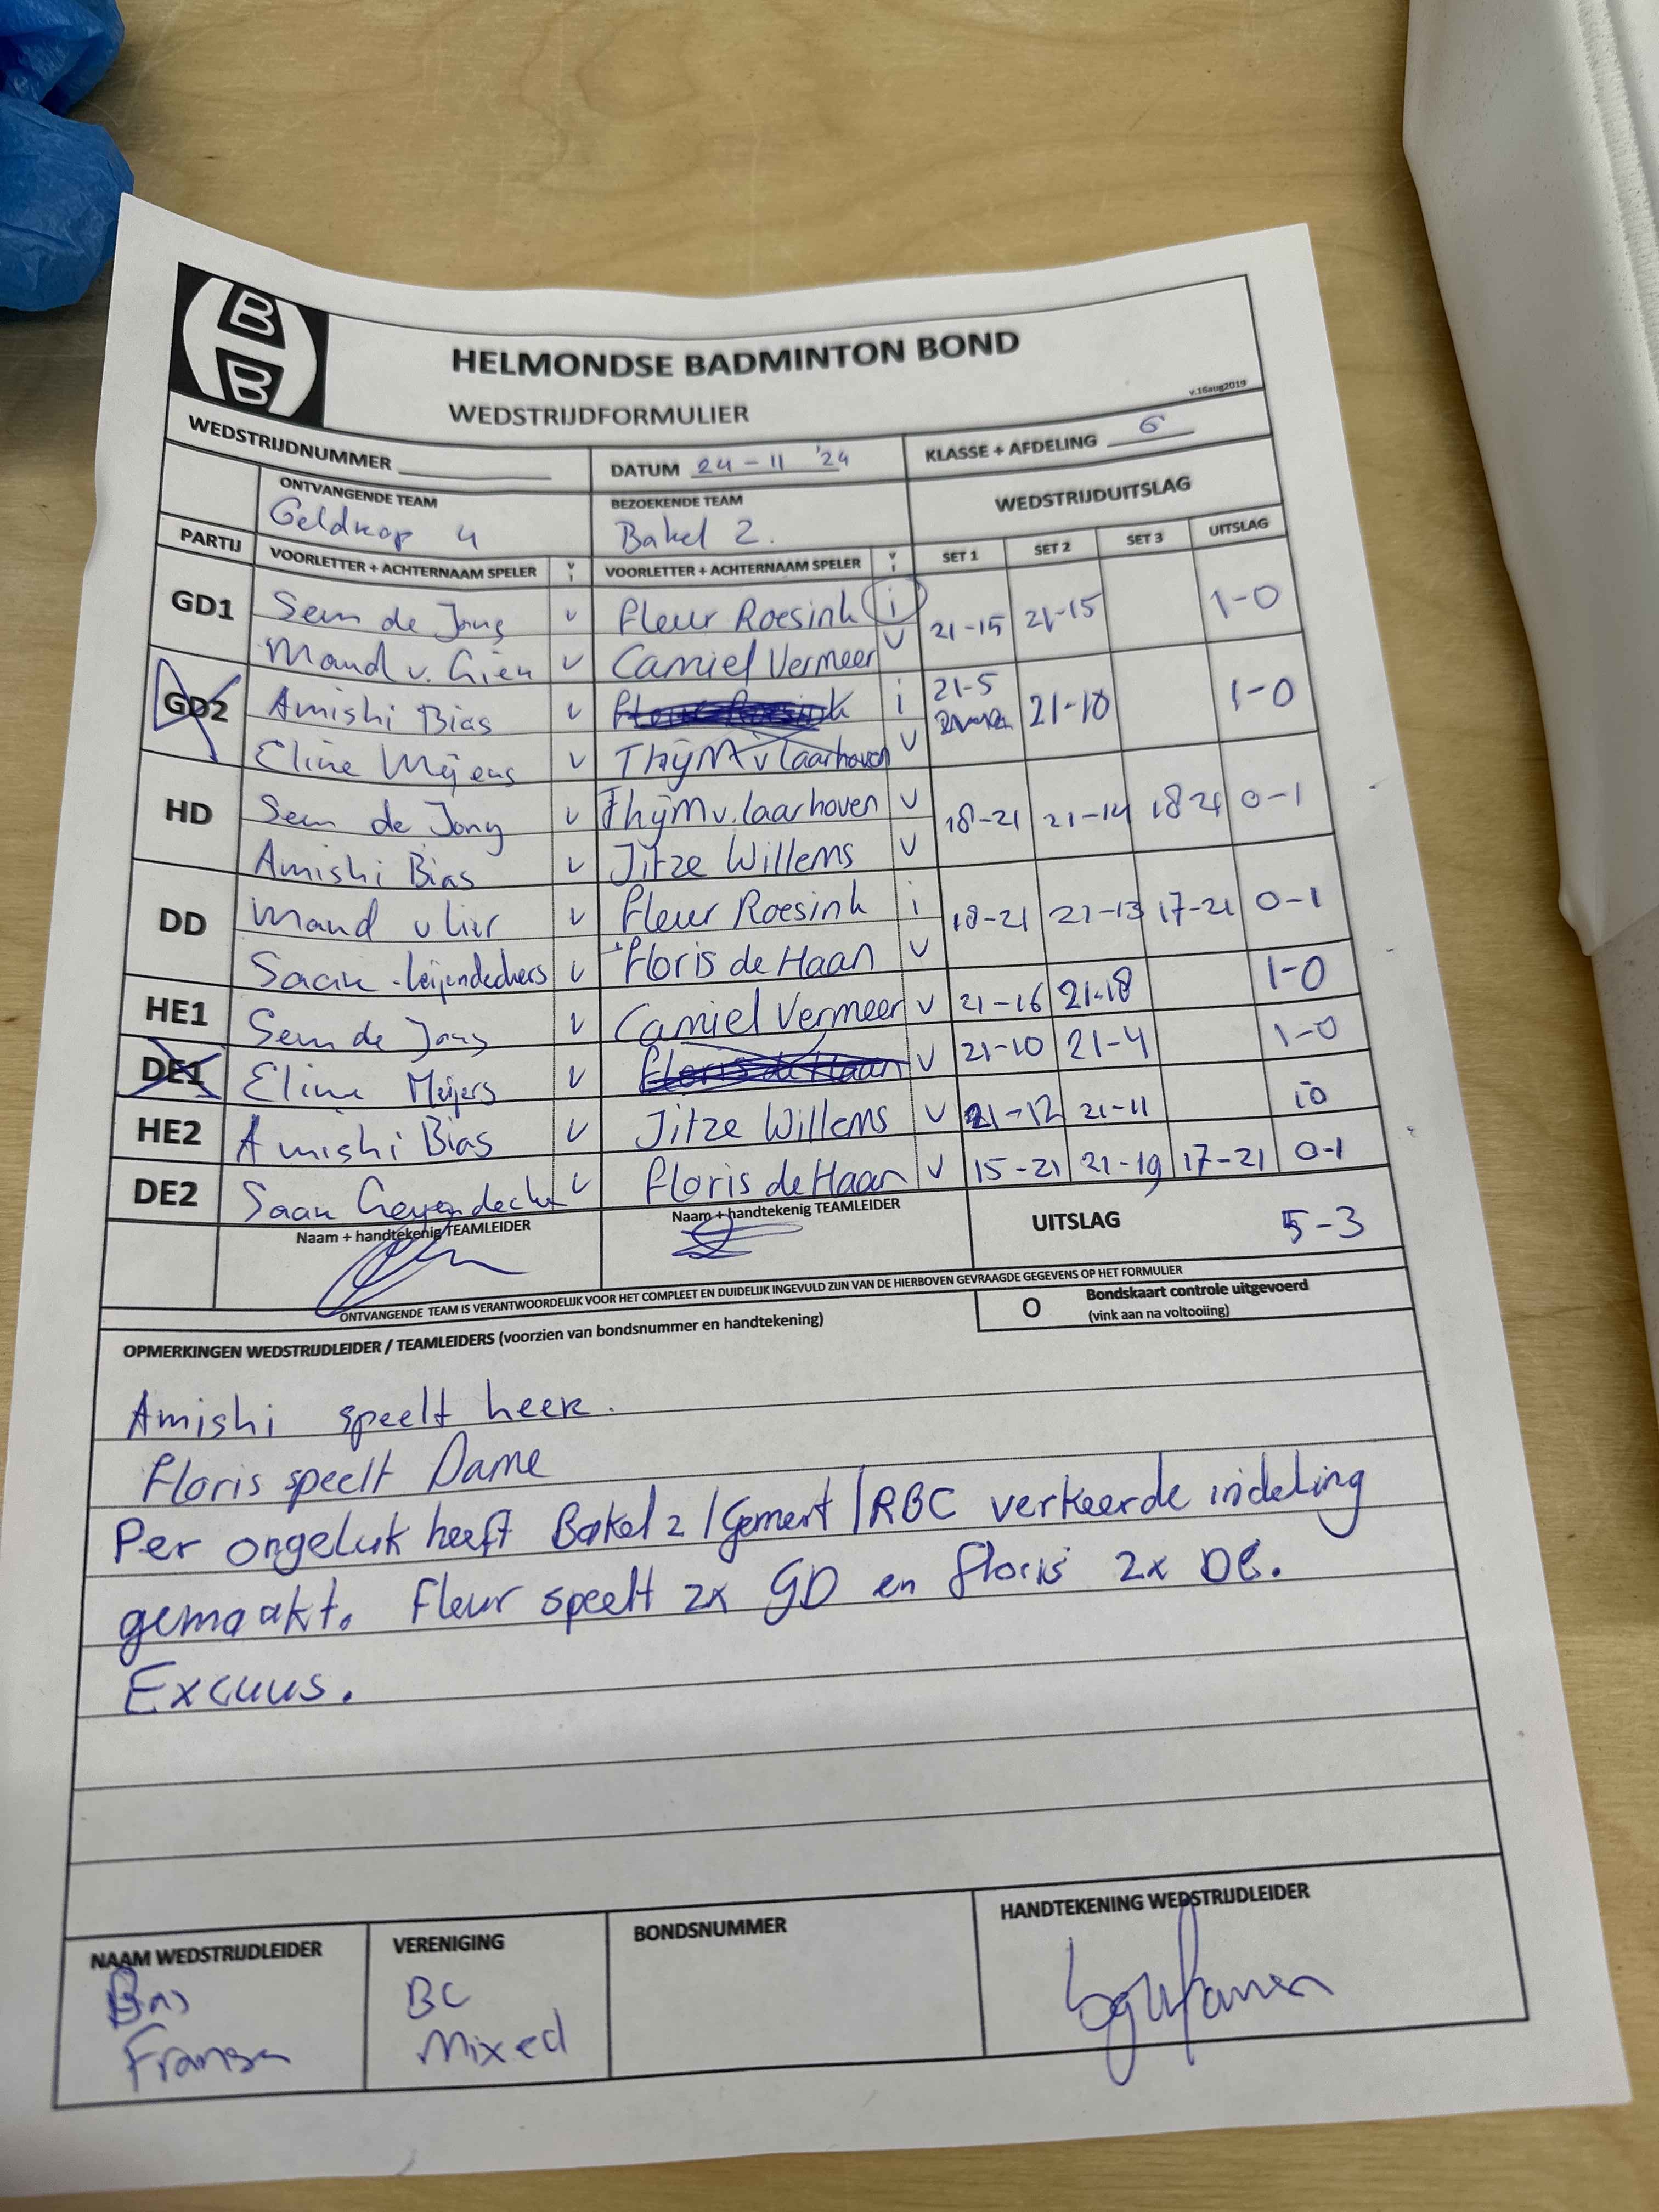 B
B
HELMONDSE BADMINTON BOND
WEDSTRIJDFORMULIER
v.16aug2019
WEDSTRIJDNUMMER
DATUM 24-11 '24
KLASSE + AFDELING 6
ONTVANGENDE TEAM
Geldrop 4
BEZOEKENDE TEAM
Bakel 2.
WEDSTRIJDUITSLAG
PARTIJ VOORLETTER + ACHTERNAAM SPELER V I VOORLETTER + ACHTERNAAM SPELER V I SET 1 SET 2 SET 3 UITSLAG
GD1 Sem de Jong v Fleur Roesink i 21-15 21-15 1-0
v Camiel Vermeer v
GD2 Amishi Bias v Fleur Roesink i 21-5 21-10 1-0
Eline Meijers v Thijm v laarhoven v
HD Sem de Jong v Thijm v. laarhoven v 18-21 21-14 18-21 0-1
Amishi Bias v Jitze Willems v
DD Maud v lier v Fleur Roesink i 18-21 21-13 17-21 0-1
Saar Leijendeckers v Floris de Haan v
HE1 Sem de Jong v Camiel Vermeer v 21-16 21-18 1-0
DE1 Eline Meijers v Floris de Haan v 21-10 21-4 1-0
HE2 Amishi Bias v Jitze Willems v 21-12 21-11 10
DE2 Saar v Floris de Haan v 15-21 21-19 17-21 0-1
Naam + handtekenig TEAMLEIDER
Naam + handtekenig TEAMLEIDER
UITSLAG 5-3
ONTVANGENDE TEAM IS VERANTWOORDELIJK VOOR HET COMPLEET EN DUIDELIJK INGEVULD ZIJN VAN DE HIERBOVEN GEVRAAGDE GEGEVENS OP HET FORMULIER
O Bondskaart controle uitgevoerd
(vink aan na voltooiing)
OPMERKINGEN WEDSTRIJDLEIDER / TEAMLEIDERS (voorzien van bondsnummer en handtekening)
Amishi speelt heer.
Floris speelt Dame
Per ongeluk heeft Bakel 2 / Gemert / RBC verkeerde indeling
gemaakt. Fleur speelt 2x GD en Floris 2x DE.
Excuus.
NAAM WEDSTRIJDLEIDER
Bas
Fransen
VERENIGING
BC
Mixed
BONDSNUMMER
HANDTEKENING WEDSTRIJDLEIDER